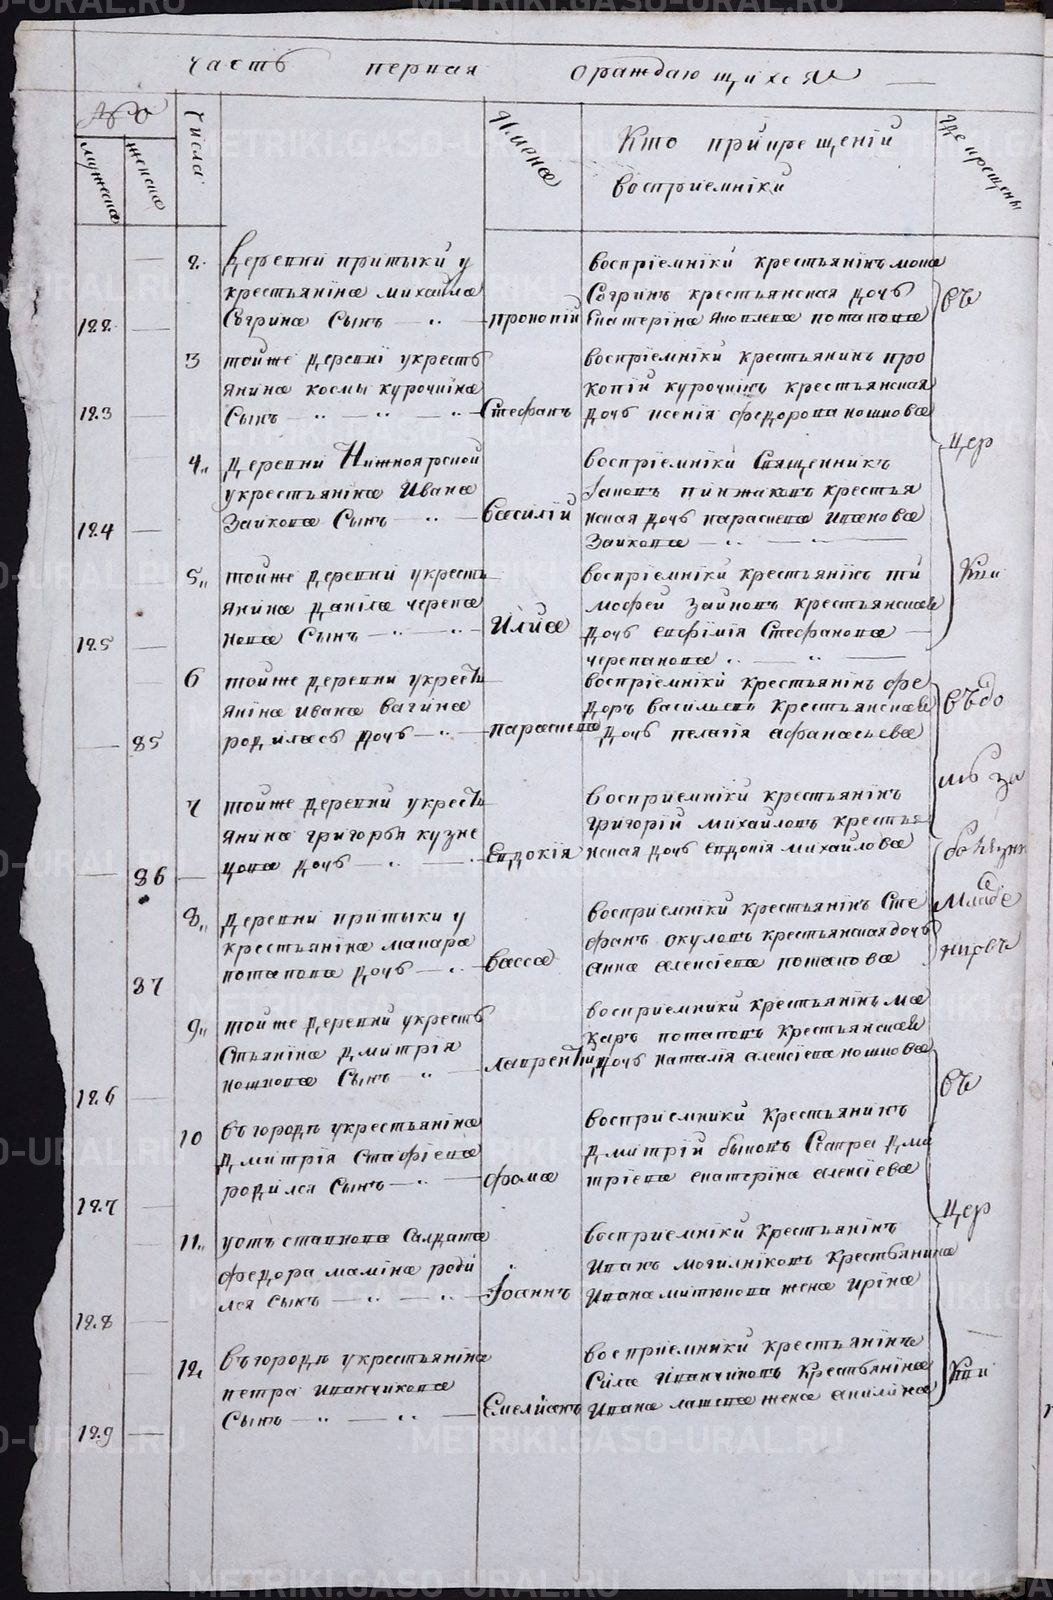 часть первая о раждающихся
№о
мужеска
женска
числа
Имена
Кто при крещеніи
восприемники
где крещены
2. Деревни притыки у
крестьянина михаила
Согрина Сынъ
122
прокопій
восприемники крестьянинъ
Согринъ крестьянская дочь
Екатерина Яковлева потапова
3 тойже деревни укресть
янина космы курочкина
Сынъ
123
Стефанъ
восприемники крестьянинъ про
копій курочкинъ крестьянская
дочь ксенія федорова кошкова
4 деревни Нижноярской
укрестьянина Ивана
Заикова Сынъ
124
василій
восприемники Священникъ
Іаковъ пинжаковъ крестья
нская дочь параскева иванова
Заикова
5 тойже деревни укресть
янина данила черепа
нова Сынъ
125
Илиа
восприемники крестьянинъ ти
мофей заиковъ крестьянская
дочь евфимія Стефанова
черепанова
6 тойже деревни укресть
янина ивана вагина
родилась дочь
85
параскева
восприемники крестьянинъ фе
доръ васильевъ крестьянская
дочь пелагія афанасьева
7 тойже деревни укресть
янина григорья кузне
цова дочь
86
Евдокія
восприемники крестьянинъ
григорій михайловъ крестья
нская дочь евдокія михайлова
8 деревни притыки у
крестьянина макара
потапова дочь
87
васса
восприемники крестьянинъ Сте
фанъ окуловъ крестьянская дочь
анна алексіева потапова
9 тойже деревни укресть
Стьянина дмитрія
кошкова Сынъ
126
лаврентий
восприемники крестьянинъ ма
каръ потаповъ крестьянская
дочь наталія алексіева кошкова
10 въгородѣ укрестьянина
дмитрія Стафіева
родился Сынъ
127
фома
восприемники крестьянинъ
дмитрій быковъ Сестра дми
тріева екатерина алексіева
11 уотъставнова Салдата
федора мамина роди
лся сынъ
128
Іоаннъ
восприемники крестьянинъ
Иванъ могилниковъ крестьянина
Ивана митюкова жена ирина
12 въгородѣ укрестьянина
петра иванчикова
Сынъ
129
Емелианъ
восприемники крестьянинъ
Сила Иванчиковъ крестьянина
Ивана лаптева жена акилина
въ
цер
кви
въдо
мѣ за
младе
въ
цер
кви